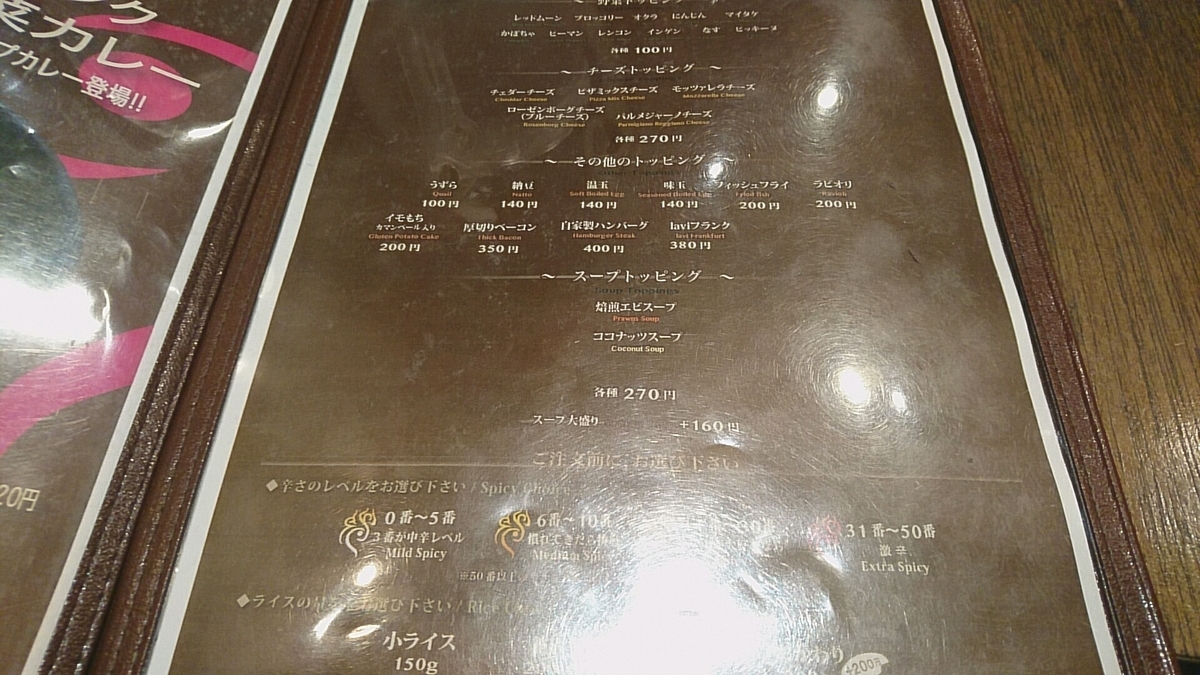 カレー
プカレー登場!!
20円
野菜トッピング
レッドムーン ブロッコリー オクラ にんじん マイタケ
かぼちゃ ピーマン レンコン インゲン なす ヒッキーヌ
各種 100円
～ チーズトッピング ～
チェダーチーズ ピザミックスチーズ モッツァレラチーズ
Cheddar Cheese Pizza Mix Cheese Mozzarella Cheese
ローゼンボーグチーズ
(ブルーチーズ) パルメジャーノチーズ
Rosenborg Cheese Parmigiano Reggiano Cheese
各種 270円
～ その他のトッピング ～
うずら 納豆 温玉 味玉 フィッシュフライ ラビオリ
Quail Natto Soft Boiled Egg Seasoned Boiled Egg Fried fish Ravioli
100円 140円 140円 140円 200円 200円
イモもち
カマンベール入り 厚切りベーコン 自家製ハンバーグ laviフランク
Gluten Potato Cake Thick Bacon Hamburger Steak lavi Frankfurt
200円 350円 400円 380円
～ スープトッピング ～
Soup Toppings
焙煎エビスープ
Prawns Soup
ココナッツスープ
Coconut Soup
各種 270円
スープ大盛り +160円
ご注文前に、お選び下さい
◆辛さのレベルをお選び下さい / Spicy Choice
0番～5番 6番～10番 31番～50番
3番が中辛レベル 慣れてきたら 激辛
Mild Spicy Medium Extra Spicy
※50番以上
◆ライスの お選び下さい / Rice
小ライス
150g +200円